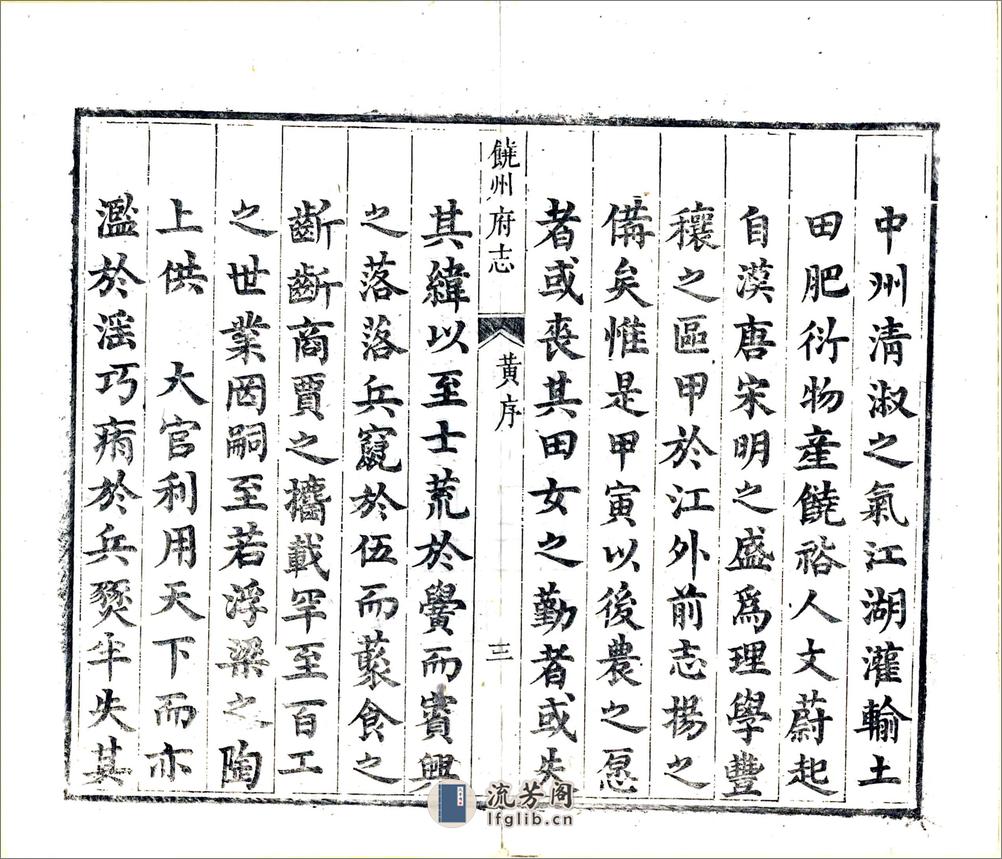 中州清淑之氣江湖灌輸土
田肥衍物產饒裕人文蔚起
自漢唐宋明之盛爲理學豐
穰之區甲於江外前志揚之
備矣惟是甲寅以後農之愿
者或喪其田女之勤者或失
饒州府志
黃序
三
其緯以至士荒於黌而賓興
之落落兵竄於伍而蒙食之
齗齗商賈之攟載罕至百工
之世業罔嗣至若浮梁之陶
上供 大官利用天下而亦
濫於滛巧痡於兵燹半失其
流芳阁
lfglib.cn